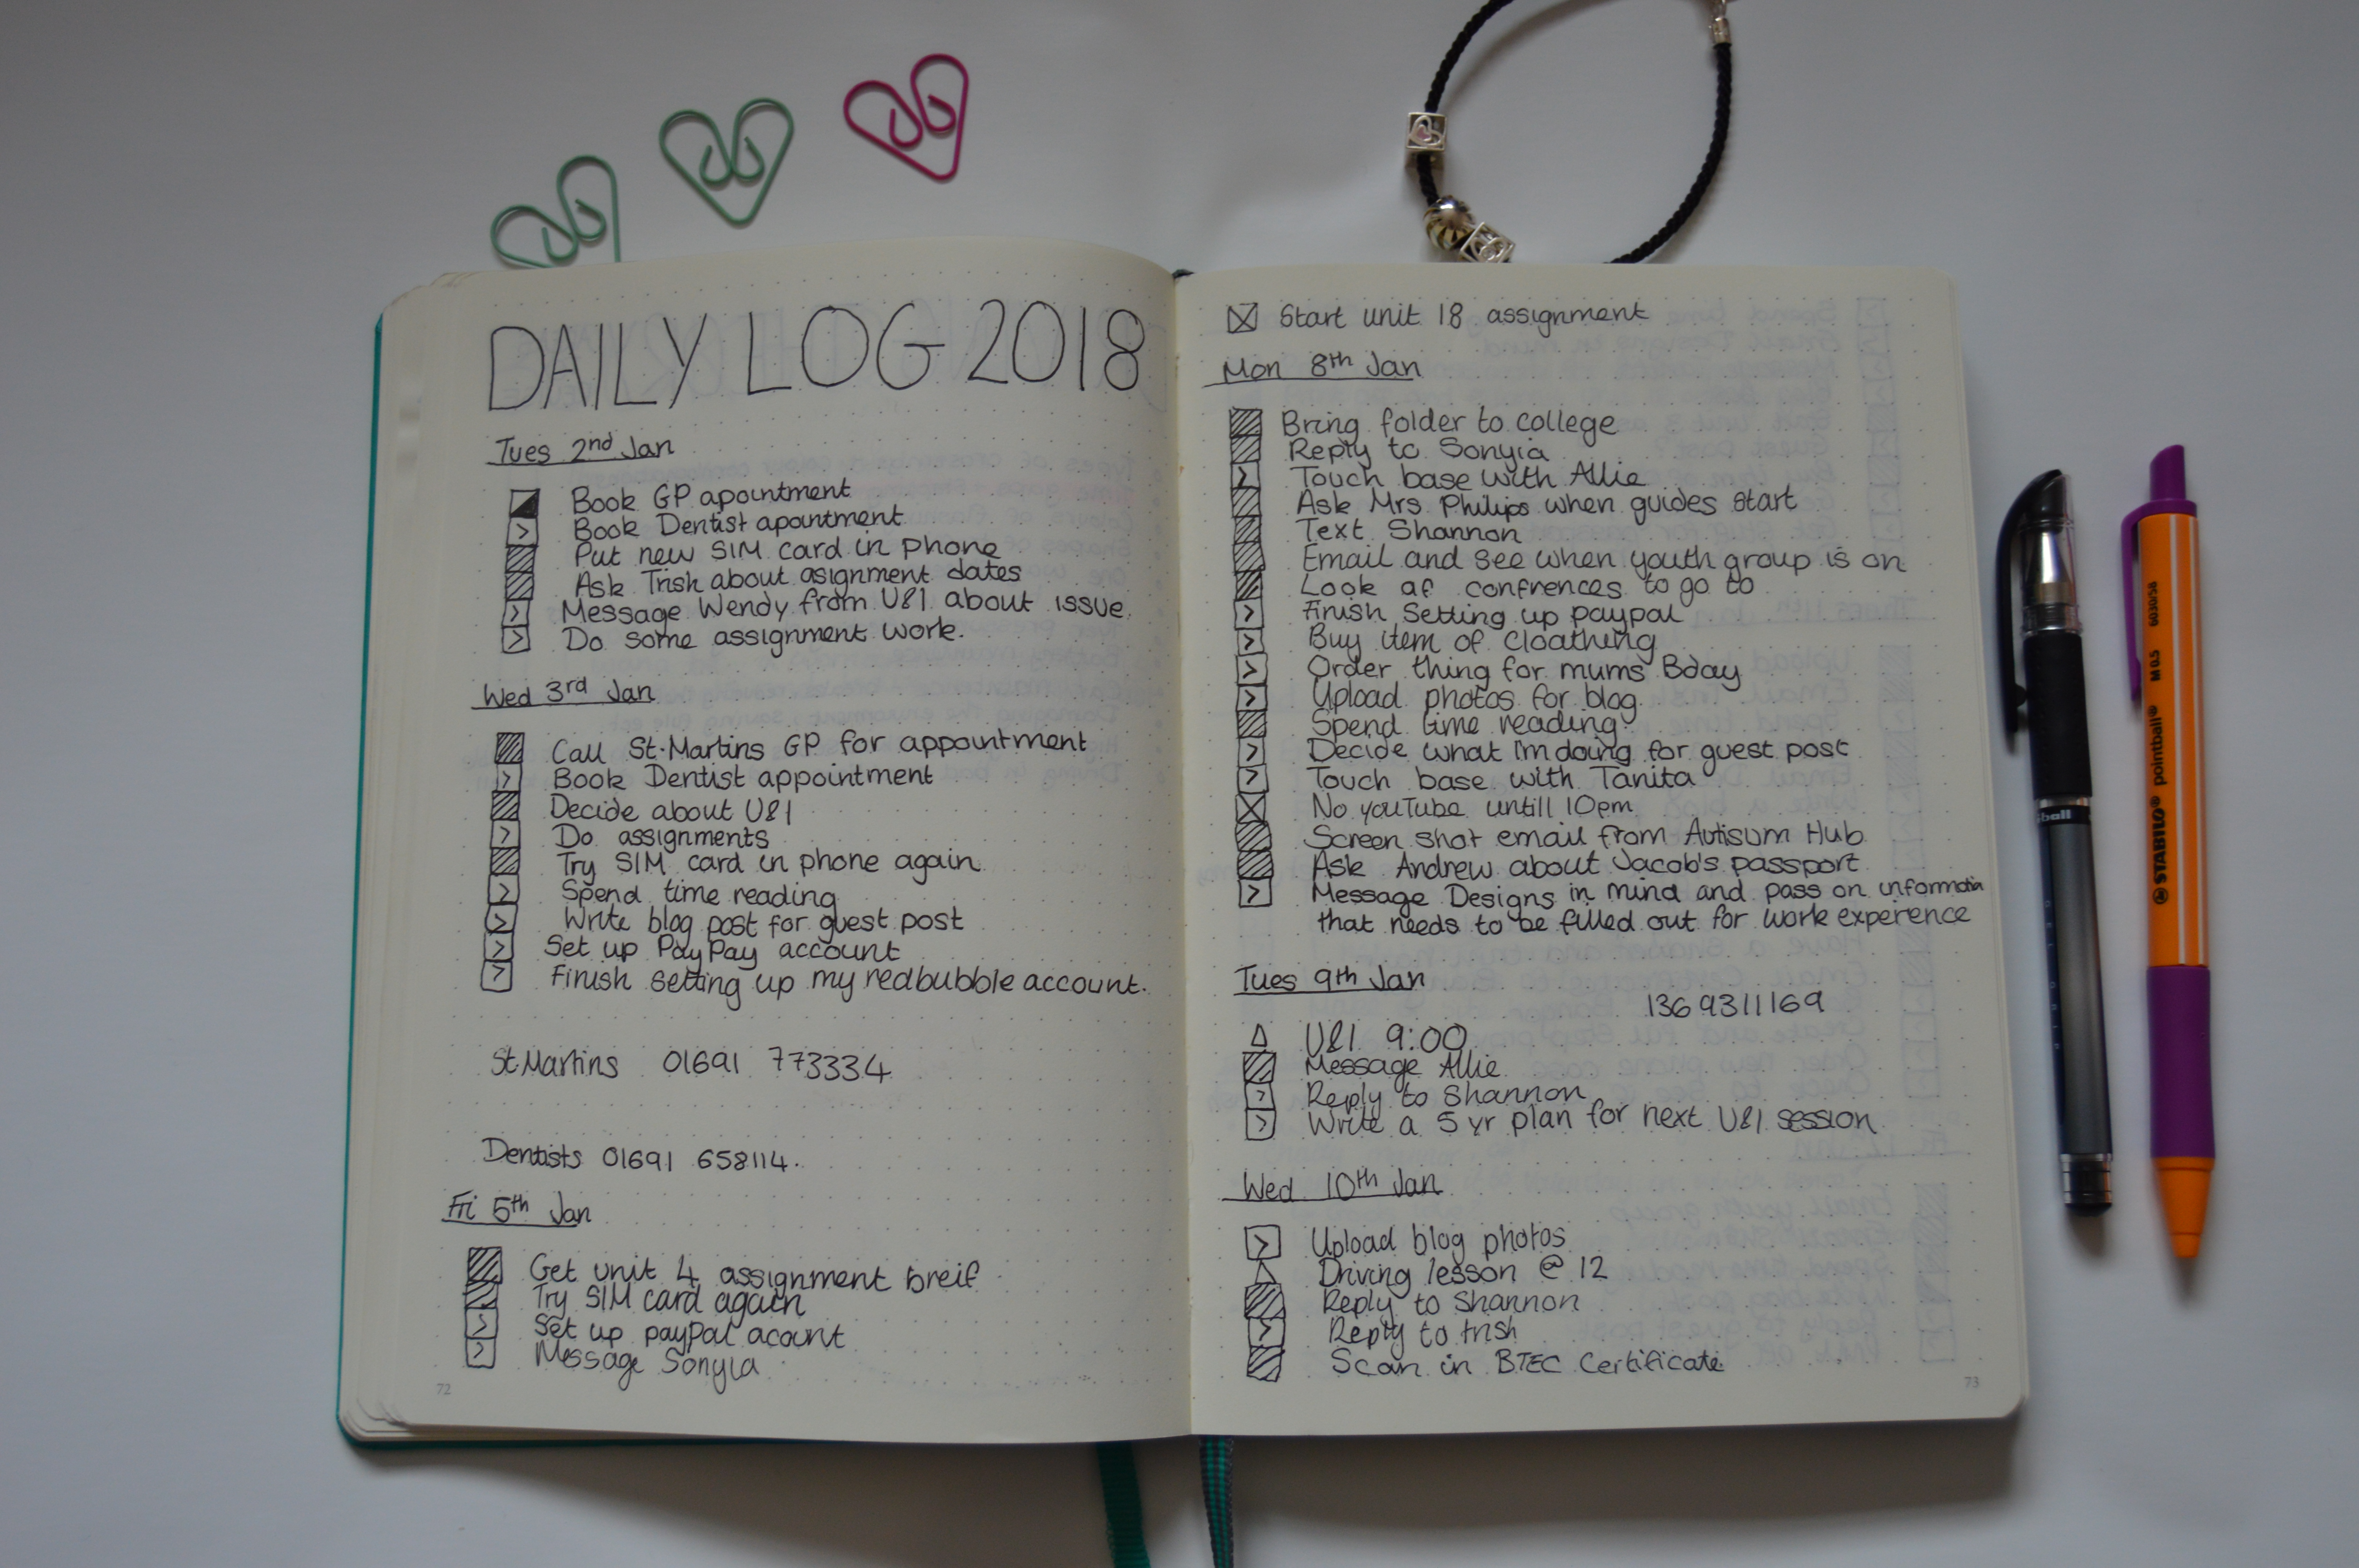 DAILY LOG 2018
Tues 2nd Jan
Book GP apointment
Book Dentist apointment
Put new SIM card in phone
Ask Trish about asignment dates
Message Wendy from U&I about issue.
Do some assignment work.
Wed 3rd Jan
Call St.Martins GP for appointment
Book Dentist appointment
Decide about U&I
Do assignments
Try SIM card in phone again
Spend time reading
Write blog post for guest post
Set up PayPay account
Finish setting up my redbubble account.
St.Martins 01691 773334
Dentists 01691 658114.
Fri 5th Jan
Get unit 4 assignment breif
Try SIM card again
Set up paypal acount
Message Sonyia
72
Start unit 18 assignment
Mon 8th Jan
Bring folder to college
Reply to Sonyia
Touch base with Allie
Ask Mrs Philips when guides start
Text Shannon
Email and see when youth group is on
Look at confrences to go to
Finish setting up paypal
Buy item of cloathing
Order thing for mums Bday
Upload photos for blog
Spend time reading
Decide what I'm doing for guest post
Touch base with Tanita
No youTube untill 10pm
Screen shot email from Autisum Hub
Ask Andrew about Jacob's passport
Message Designs in mind and pass on information
that needs to be filled out for work experence
Tues 9th Jan
1369311169
U&I 9:00
Message Allie
Reply to Shannon
Write a 5 yr plan for next U&I session
Wed 10th Jan
Upload blog photos
Driving lesson @ 12
Reply to Shannon
Reply to trish
Scan in BTEC Certificate
73
STABILO® pointball® M 0.5 6030/56